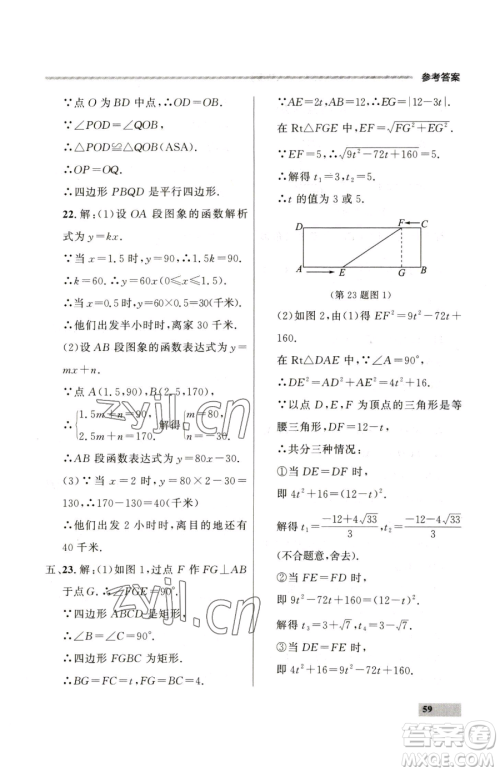 参考答案
∵点 O 为 BD 中点,∴OD=OB.
∵∠POD=∠QOB,
∴△POD≌△QOB(ASA).
∴OP=OQ.
∴四边形 PBQD 是平行四边形.
22.解:(1)设 OA 段图象的函数解析
式为 y=kx.
∵当 x=1.5 时,y=90,∴1.5k=90.
∴k=60,∴y=60x(0≤x≤1.5).
∴当 x=0.5 时,y=60×0.5=30(千米).
∴他们出发半小时时,离家 30 千米.
(2)设 AB 段图象的函数表达式为 y=
mx+n.
∵点 A(1.5,90),B(2.5,170),
∴{1.5m+n=90, 2.5m+n=170. 解得{m=80, n=-30.
∴AB 段函数表达式为 y=80x-30.
(3)∵当 x=2 时,y=80×2-30=130,
∴170-130=40(千米)
∴他们出发 2 小时时,离目的地还有
40 千米.
五、23.解:(1)如图 1,过点 F 作 FG⊥AB
于点 G,∴∠FGE=90°.
∵四边形 ABCD 是矩形,
∴∠B=∠C=90°.
∴四边形 FGBC 为矩形.
∴BG=FC=t,∴FG=BC=4.
∵AE=2t,∴EG=|12-3t|.
在 Rt△FGE 中,EF=√(FG²+EG²).
∵EF=5,∴√(9t²-72t+160)=5.
∴解得 t₁=3,t₂=5.
∴t 的值为 3 或 5.
D F C
A E G B
(第 23 题图 1)
(2)如图 2,由(1)得 EF²=9t²-72t+
160.
在 Rt△DAE 中,∵∠A=90°,
∴DE²=DA²+AE²=16+4t².
∵DF=12-t,∴DF²=(12-t)².
∵以点 D,E,F 为顶点的三角形是等
腰三角形,
∴共分三种情况:
①当 DE=DF 时,
即 4t²+16=(12-t)².
解得 t₁=(-12+4√33)/3,t₂=(-12-4√33)/3
(不合题意,舍去).
②当 DE=EF 时,
即 4t²+16=9t²-72t+160.
解得 t₃=3-√7,t₄=3+√7.
③当 DF=EF 时,
即 4t²+16=9t²-72t+160.
59
zyjl.cn
zyjl.cn
答案圈
MXQE.COM